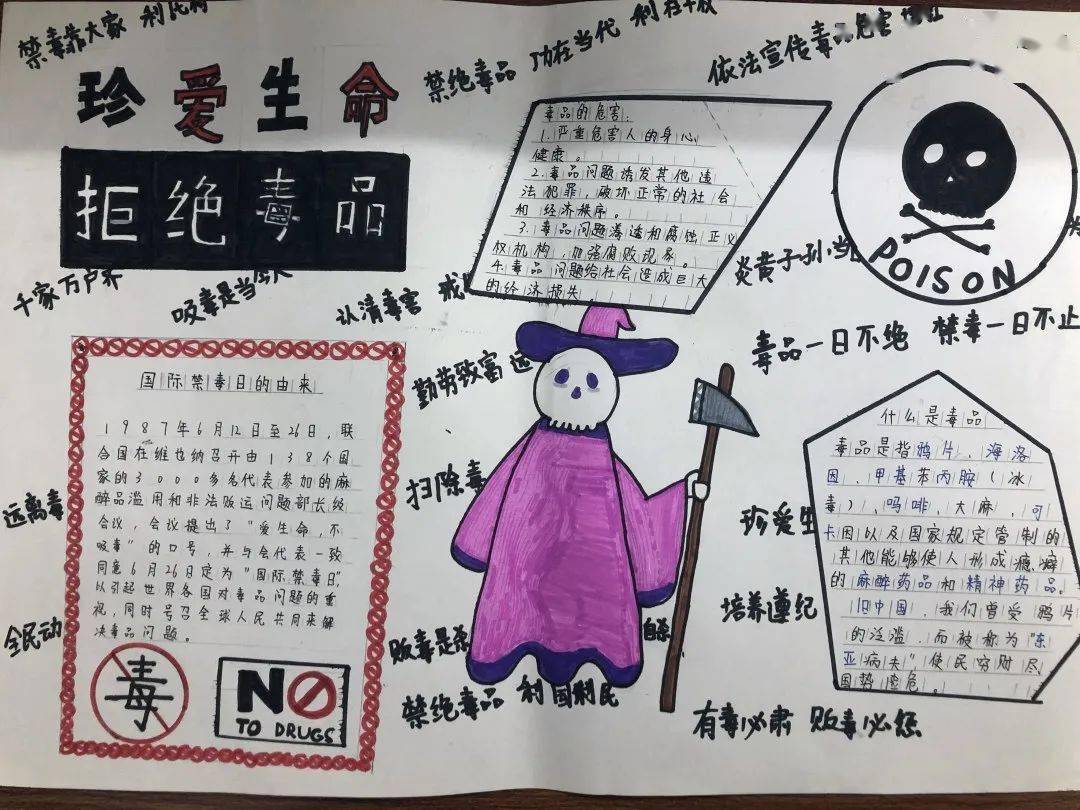 禁毒靠大家 利民
禁绝毒品 功在当代 利在千
依法宣传毒品危害
珍爱生命
拒绝毒品
千家万户齐
吸毒是当今人
认清毒害
毒品的危害:
1.严重危害人的身心
健康。
2.毒品问题诱发其他违
法犯罪,破坏正常的社会
和经济秩序。
3.毒品问题渗透和腐蚀正义
权机构,加强腐败现象。
4.毒品问题给社会造成巨大
的经济损失
POISON
炎黄子孙,当
毒品一日不绝 禁毒一日不止
国际禁毒日的由来
1987年6月12日至26日,联
合国在维也纳召开由138个国
家的3000多名代表参加的麻
醉品滥用和非法贩运问题部长级
会议,会议提出了"爱生命,不
吸毒"的口号,并与会代表一致
同意6月26日定为"国际禁毒日"
以引起世界各国对毒品问题的重
视,同时号召全球人民共同来解
决毒品问题。
毒
NO
TO DRUGS
远离毒
全民动
勤劳致富 远
扫除毒
贩毒是杀
自杀
禁绝毒品 利国利民
珍爱生
培养遵纪
什么是毒品
毒品是指鸦片、海洛
因、甲基苯丙胺(冰
毒)、吗啡、大麻、可
卡因以及国家规定管制的
其他能够使人形成瘾癖
的麻醉药品和精神药品。
旧中国,我们曾受鸦片
的泛滥,而被称为"东
亚病夫",使民穷财尽
国势危。
有毒必肃 贩毒必惩